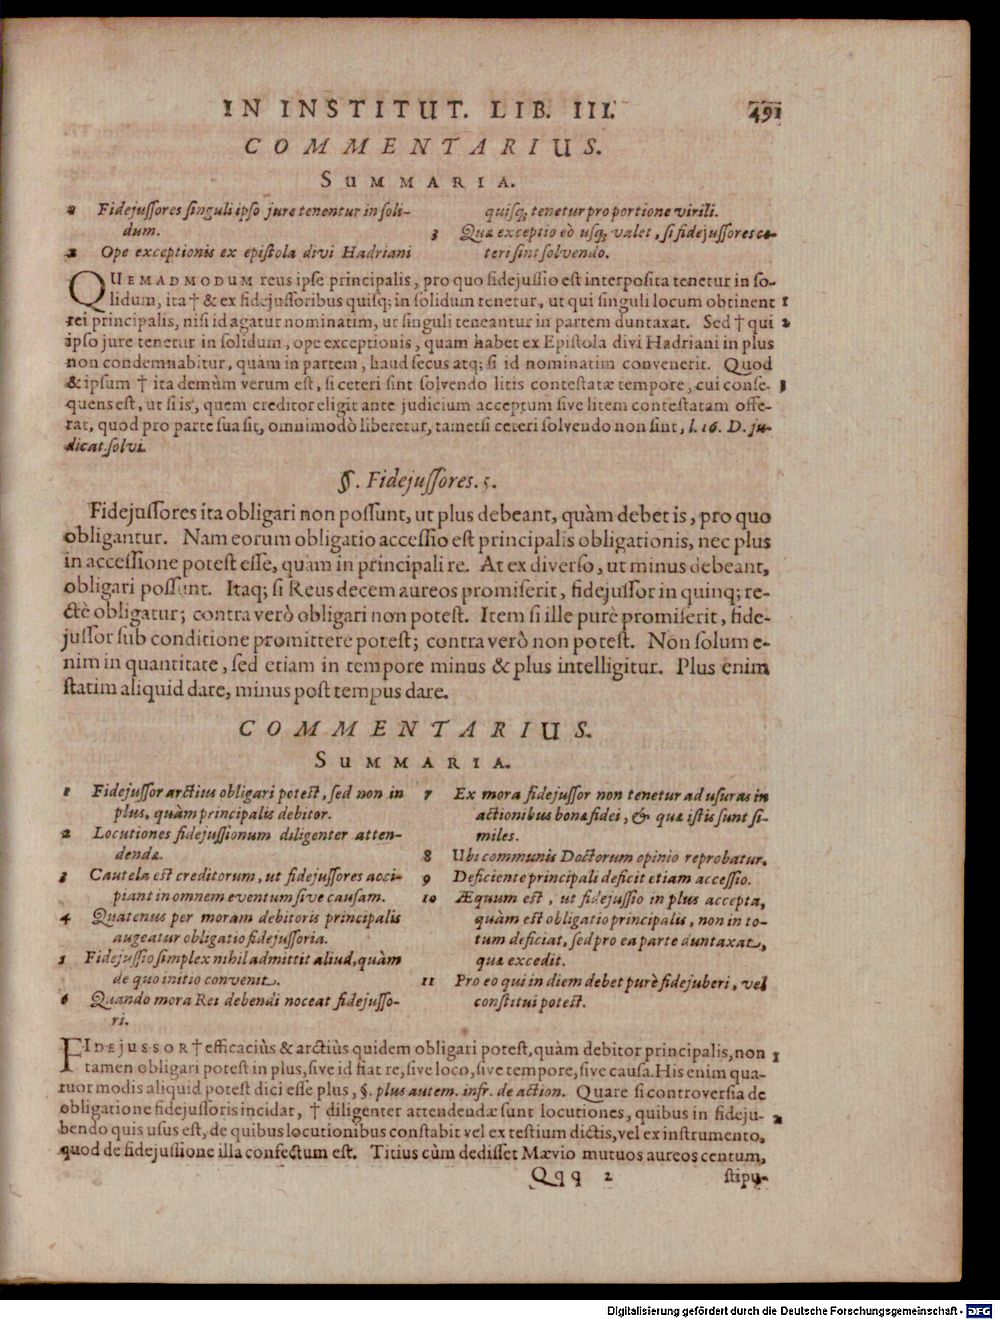 IN INSTITUT. LIB. III. 491
COMMENTARIUS.
SUMMARIA.
1 Fidejussores singuli ipso jure tenentur in soli-
dum.
2 Ope exceptionis ex epistola divi Hadriani
quisq; tenetur pro portione virili.
3 Quæ exceptio eò usq; valet, si fidejussores ce-
teri sint solvendo.
QUEMADMODUM reus ipse principalis, pro quo fidejussio est interposita tenetur in so-
lidum, ita † & ex fidejussoribus quisq; in solidum tenetur, ut qui singuli locum obtinent 1
rei principalis, nisi id agatur nominatim, ut singuli teneantur in partem duntaxat. Sed † qui 2
ipso jure tenetur in solidum, ope exceptionis, quam habet ex Epistola divi Hadriani in plus
non condemnabitur, quàm in partem, haud secus atq; si id nominatim convenerit. Quod
& ipsum † ita demùm verum est, si ceteri sint solvendo litis contestatæ tempore, cui conse- 3
quens est, ut si is, quem creditor eligit ante judicium acceptum sive litem contestatam offe-
rat, quod pro parte sua sit, omnimodò liberetur, tametsi ceteri solvendo non sint, l. 16. D. ju-
dicat. solvi.
§. Fidejussores. 5.
Fidejussores ita obligari non possunt, ut plus debeant, quàm debet is, pro quo
obligantur. Nam eorum obligatio accessio est principalis obligationis, nec plus
in accessione potest esse, quàm in principali re. At ex diverso, ut minus debeant,
obligari possunt. Itaq; si Reus decem aureos promiserit, fidejussor in quinq; re-
ctè obligatur; contra verò obligari non potest. Item si ille purè promiserit, fide-
jussor sub conditione promittere potest; contra verò non potest. Non solum e-
nim in quantitate, sed etiam in tempore minus & plus intelligitur. Plus enim
statim aliquid dare, minus post tempus dare.
COMMENTARIUS.
SUMMARIA.
1 Fidejussor arctius obligari potest, sed non in
plus, quàm principalis debitor.
2 Locutiones fidejussionum diligenter atten-
dendæ.
3 Cautela est creditorum, ut fidejussores acci-
piant in omnem eventum sive causam.
4 Quatenus per moram debitoris principalis
augeatur obligatio fidejussoria.
5 Fidejussio simplex nihil admittit aliud, quàm
de quo initio convenit.
6 Quando mora Rei debendi noceat fidejusso-
ri.
7 Ex mora fidejussor non tenetur ad usuras in
actionibus bonæ fidei, & quæ istis sunt si-
miles.
8 Ubi communis Doctorum opinio reprobatur.
9 Deficiente principali deficit etiam accessio.
10 Æquum est, ut fidejussio in plus accepta,
quàm est obligatio principalis, non in to-
tum deficiat, sed pro ea parte duntaxat,
qua excedit.
11 Pro eo qui in diem debet purè fidejuberi, vel
constitui potest.
FIDEJUSSOR † efficaciùs & arctiùs quidem obligari potest, quàm debitor principalis, non 1
tamen obligari potest in plus, sive id fiat re, sive loco, sive tempore, sive causa. His enim qua-
tuor modis aliquid potest dici esse plus, §. plus autem. infr. de action. Quare si controversia de
obligatione fidejussoris incidat, † diligenter attendendæ sunt locutiones, quibus in fideju- 2
bendo quis usus est, de quibus locutionibus constabit vel ex testium dictis, vel ex instrumento,
quod de fidejussione illa confectum est. Titius cùm dedisset Mævio mutuos aureos centum,
Qqq 2 stipu-
Digitalisierung gefördert durch die Deutsche Forschungsgemeinschaft - DFG